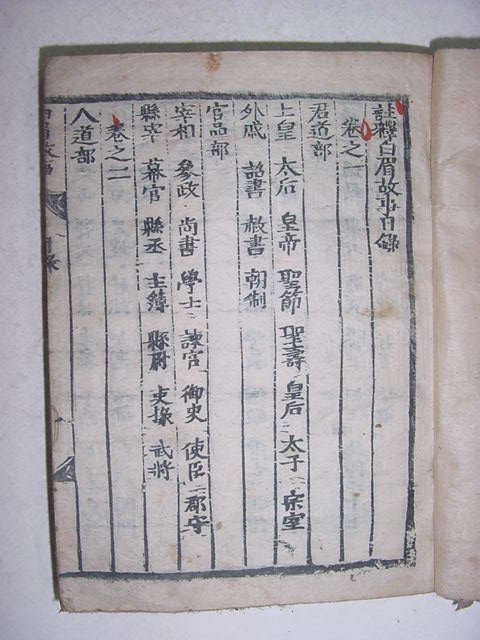 註釋白眉故事目錄
卷之一
君道部
上皇 太后 皇帝 聖節 聖壽 皇后 太子 宗室
外戚 詔書 赦書 朝制
官品部
宰相 參政 尚書 學士 諫官 御史 使臣 郡守
縣宰 幕官 縣丞 主簿 縣尉 吏掾 武將
卷之二
人道部